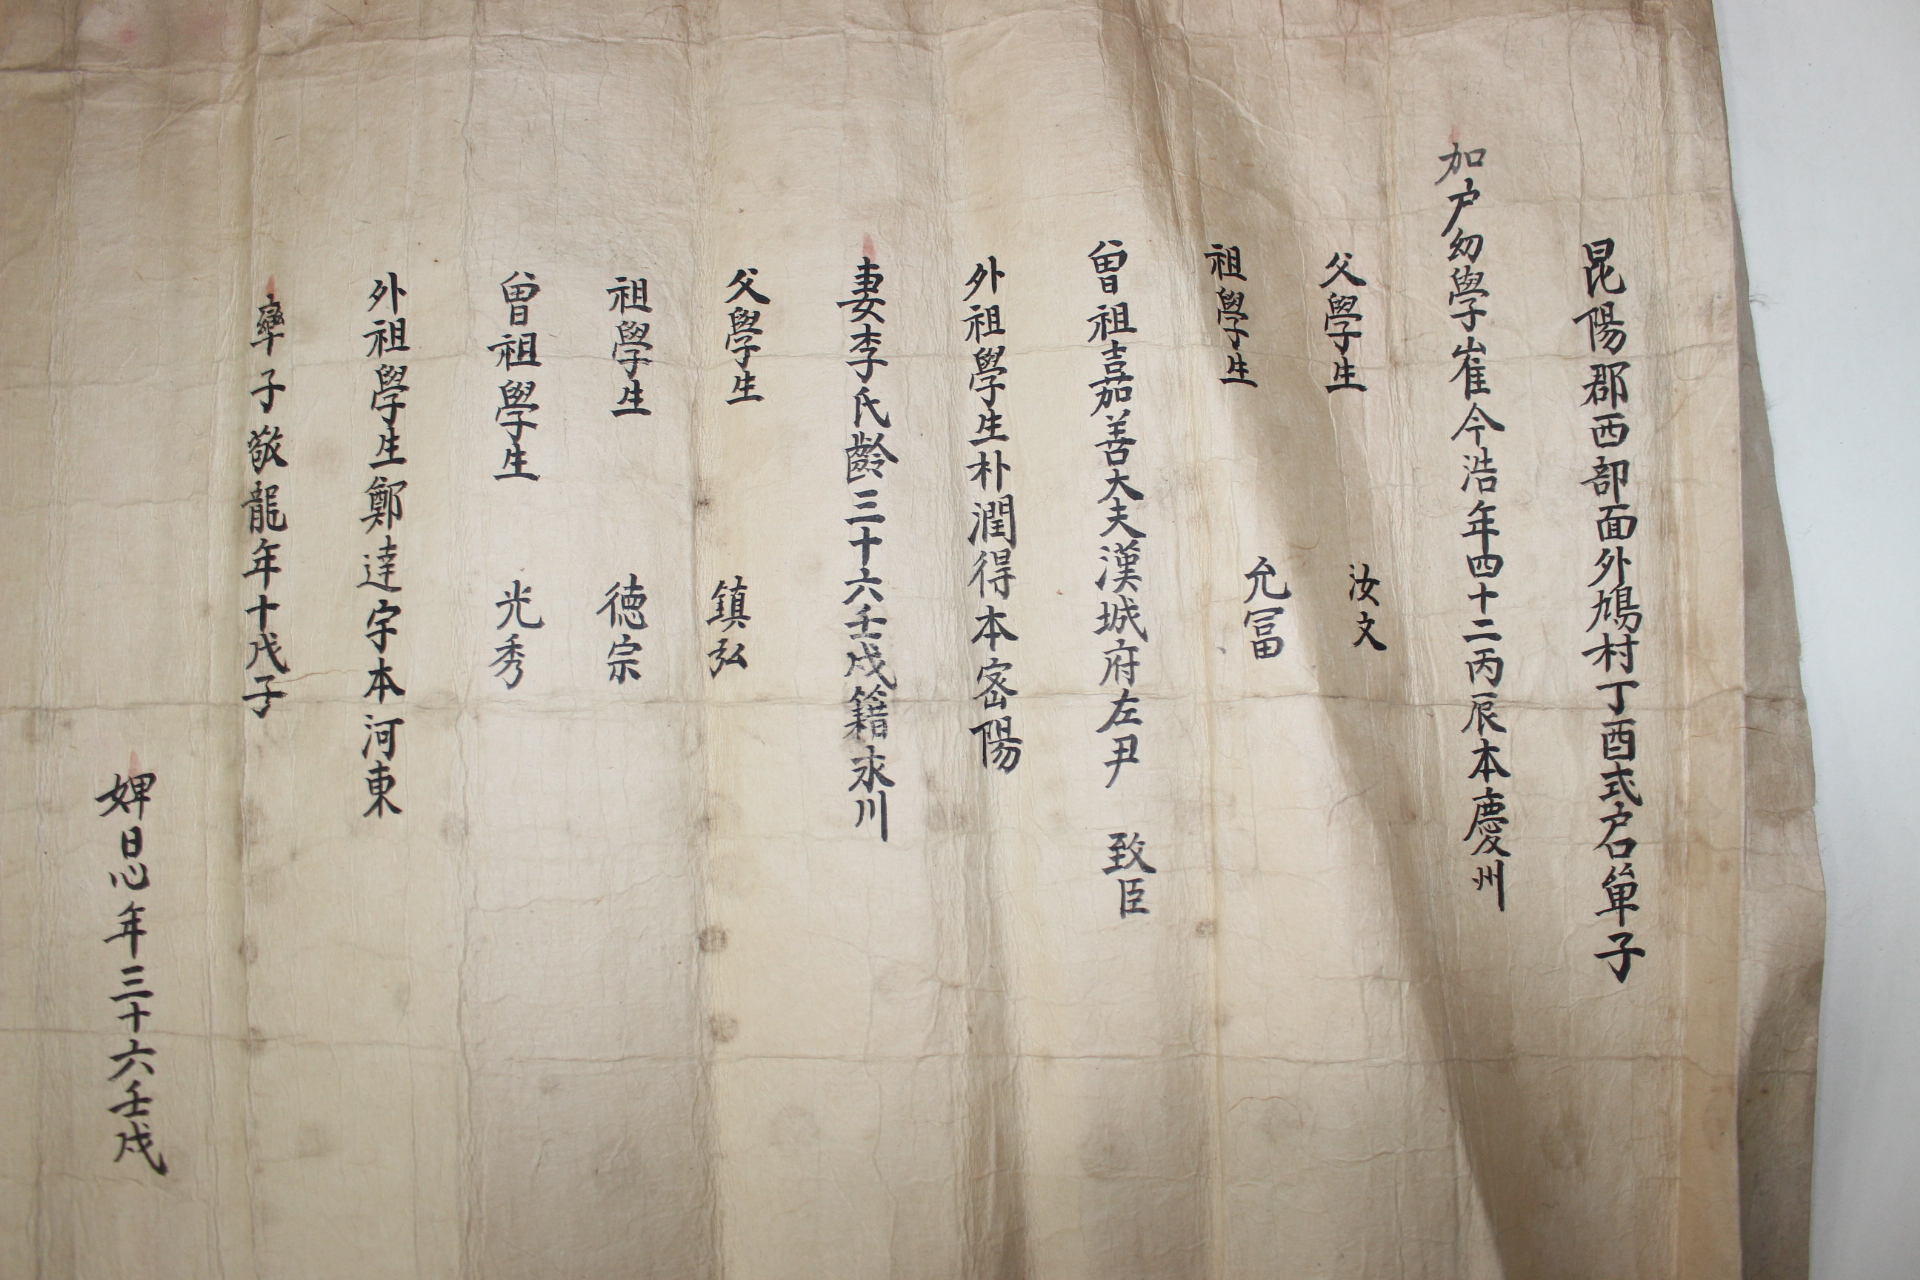 昆陽郡西部面外鳩村丁酉式户名单子
加户幼學崔今浩年四十二丙辰本慶州
父學生 汝文
祖學生 允冨
曽祖嘉善大夫漢城府左尹 致臣
外祖學生朴潤得本密陽
妻李氏齡三十六壬戌籍永川
父學生 鎮弘
祖學生 德宗
曽祖學生 光秀
外祖學生鄭達宇本河東
率子敬龍年十戊子
婢日心年三十六壬戌